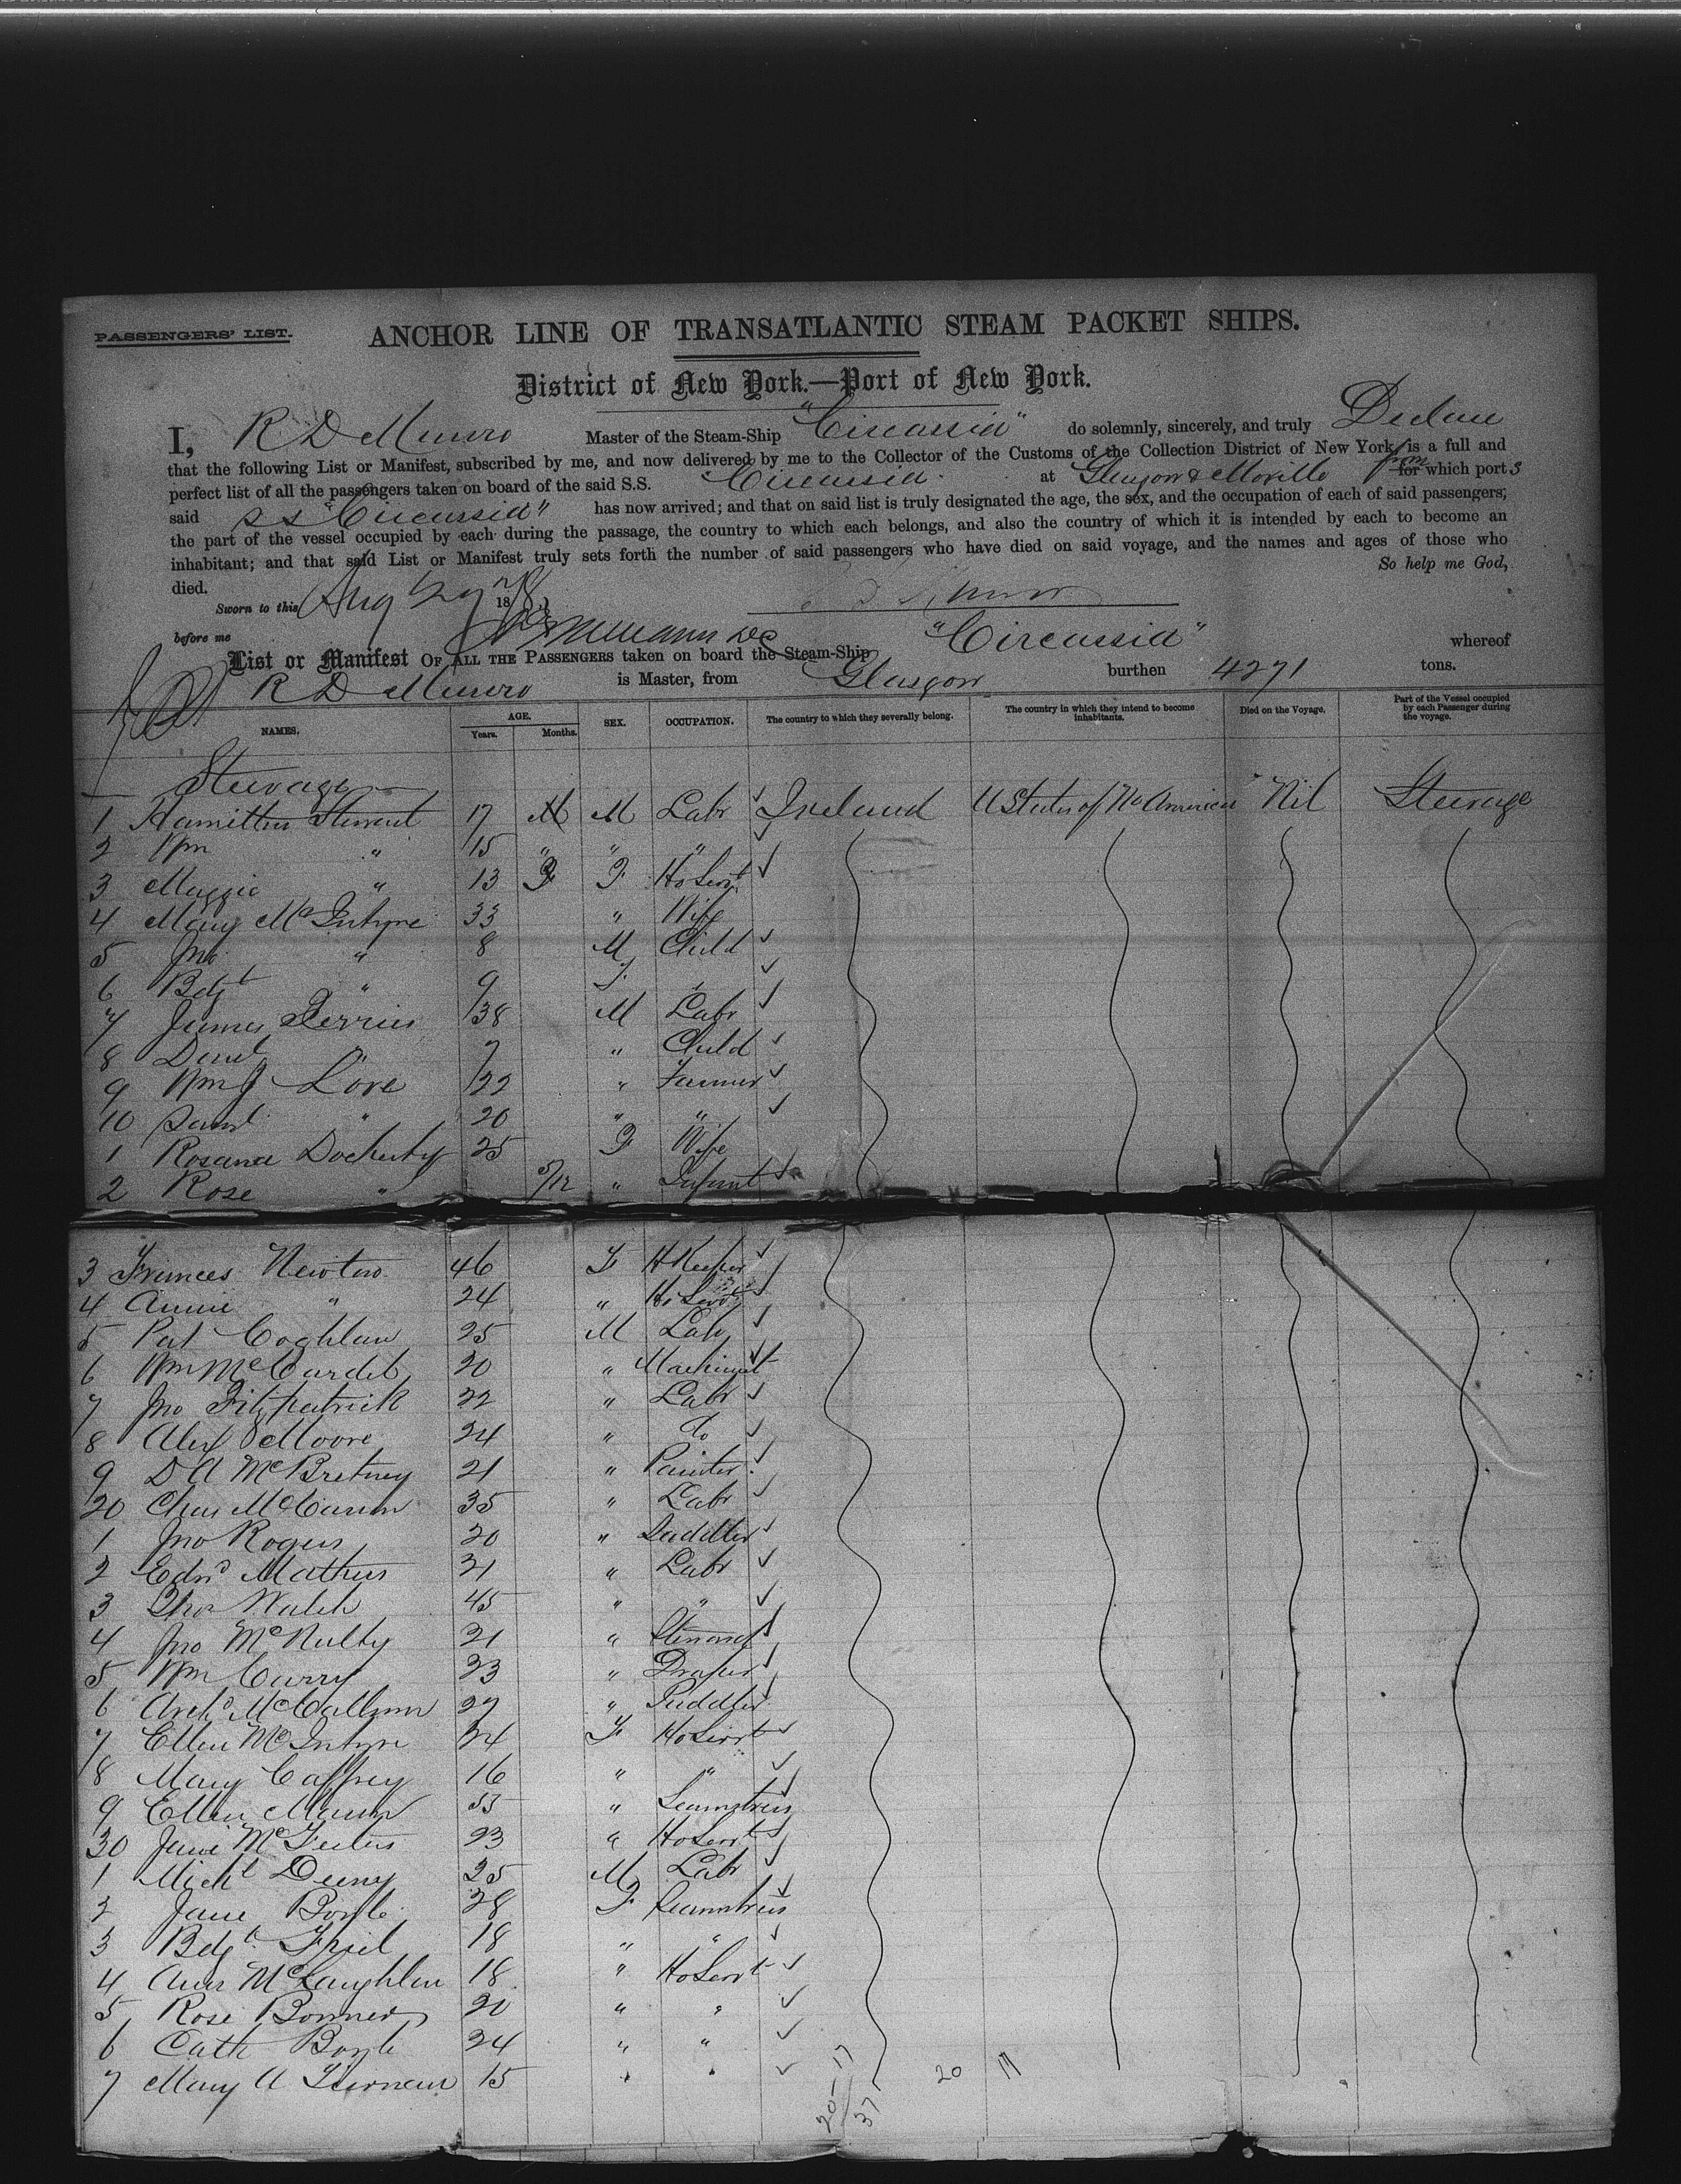 PASSENGERS' LIST.
ANCHOR LINE OF TRANSATLANTIC STEAM PACKET SHIPS.
District of New York.—Port of New York.
I, R D Munro Master of the Steam-Ship "Circassia" do solemnly, sincerely, and truly Declare
that the following List or Manifest, subscribed by me, and now delivered by me to the Collector of the Customs of the Collection District of New York, is a full and
perfect list of all the passengers taken on board of the said S.S. Circassia at Glasgow & Moville from for which port s
said SS "Circassia" has now arrived; and that on said list is truly designated the age, the sex, and the occupation of each of said passengers;
the part of the vessel occupied by each during the passage, the country to which each belongs, and also the country of which it is intended by each to become an
inhabitant; and that said List or Manifest truly sets forth the number of said passengers who have died on said voyage, and the names and ages of those who
died. So help me God,
Sworn to this Aug 29 18
before me
List or Manifest OF ALL THE PASSENGERS taken on board the Steam-Ship "Circassia" whereof
R D Munro is Master, from Glasgow burthen 4271 tons.
NAMES. AGE. Years. Months. SEX. OCCUPATION. The country to which they severally belong. The country in which they intend to become inhabitants. Died on the Voyage. Part of the Vessel occupied by each Passenger during the voyage.
Steerage
1 Hamilton Stewart 17 M M Labr Ireland U States of No America Nil Steerage
2 Wm " 15 " " "
3 Maggie " 13 F F Ho Servt
4 Mary McIntyre 33 " Wife
5 Jno " 8 M Child
6 Bdgt " 9 F "
7 James 38 M Labr
8 " 7 " Child
9 Wm J Love 22 " Farmer
10 Saml " 20 " "
1 Rosana Docherty 25 F Wife
2 Rose " 5/12 " Infant
3 Frances Newton 46 F H Keeper
4 Annie " 24 " Ho Servt
5 Pat Coghlan 25 M Labr
6 Wm McCardle 20 " Machinist
7 Jno Fitzpatrick 22 " Labr
8 Alex Moore 24 " Do
9 D A McBretney 21 " Painter
20 Chas McCann 35 " Labr
1 Jno Rogers 20 " Saddler
2 Edwd Mathers 21 " Labr
3 Thos Walsh 45 " "
4 Jno McNulty 21 " Steward
5 Wm Curry 23 " Draper
6 Archd McCallum 27 " Puddler
7 Ellen McIntyre 24 F Ho Servt
8 Mary Caffrey 16 " "
9 Ellen Mann " Seamstress
30 Jane McFeeters 23 " Ho Servt
1 Michl Deeny 25 M Labr
2 Jane Boyle 28 F Seamstress
3 Bdgt Friel 18 " "
4 Ann McLaughlin 18 " Ho Servt
5 Rose Bonner 20 " "
6 Cath Boyle 24 " "
7 Mary A Tiernan 15 " "
20 — 17
37
20 17